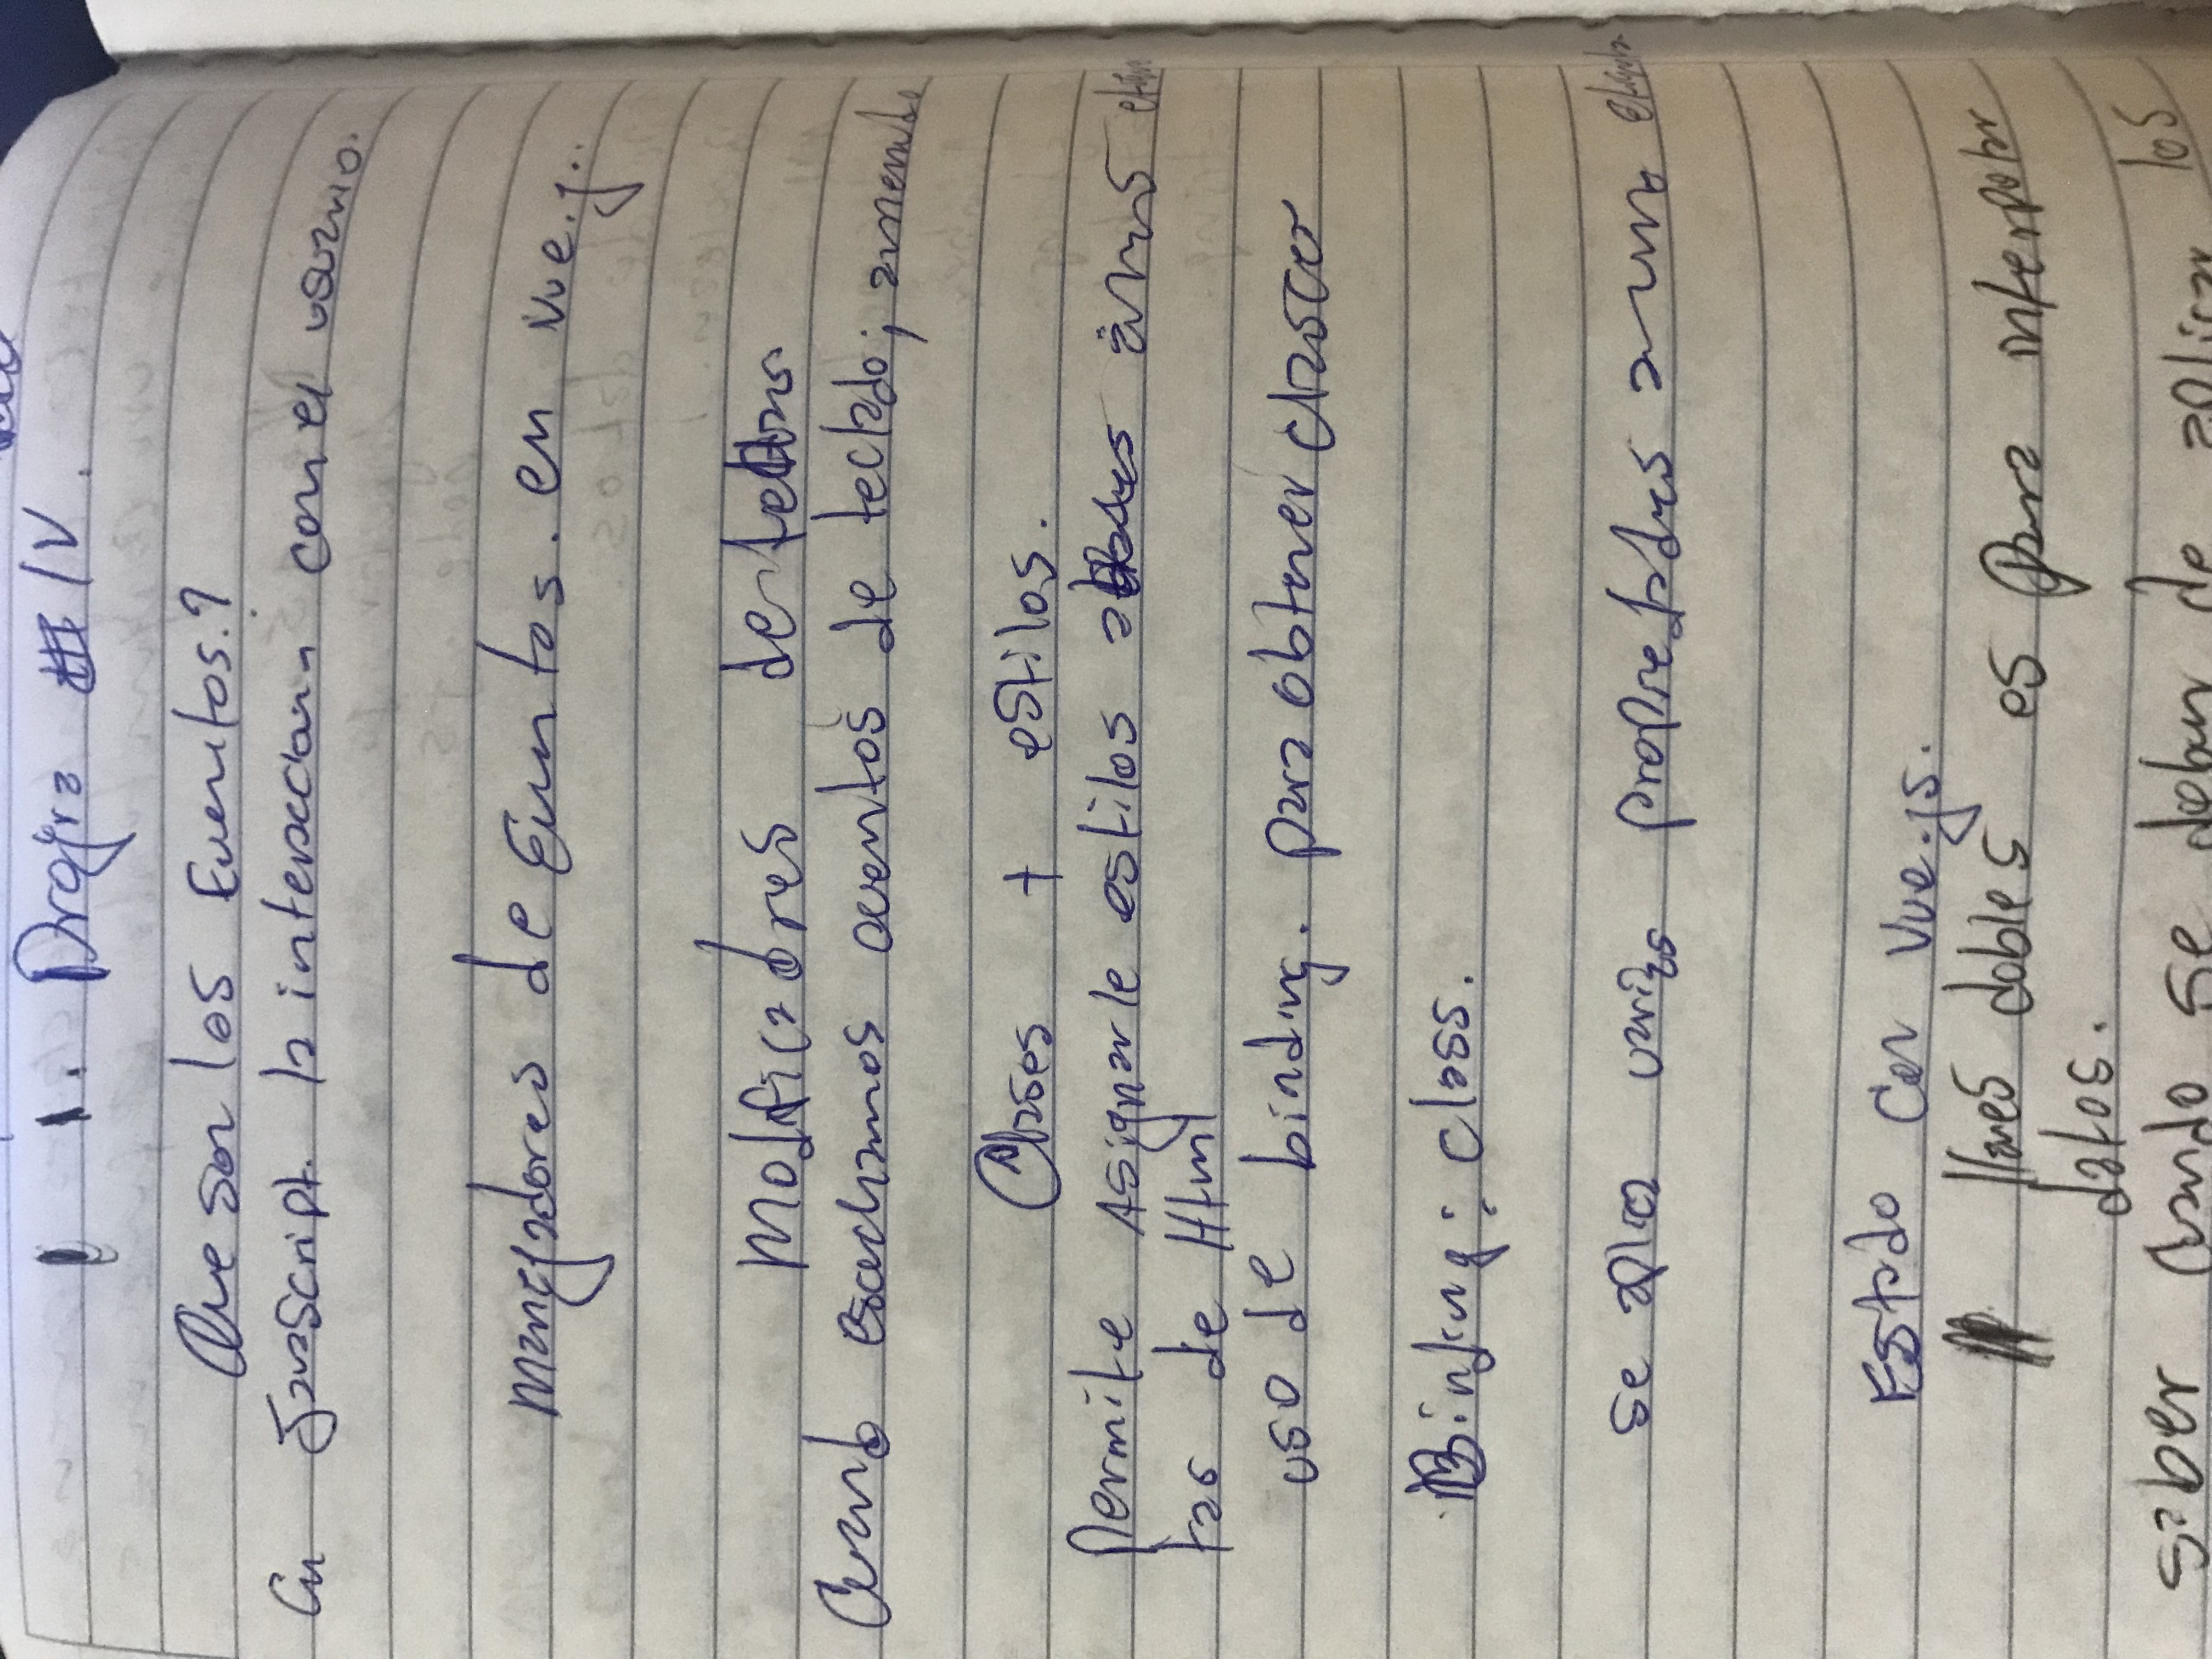 Progra IV.
Que son los Eventos.?
En JavaScript. la interaccion con el usuario.
manejadores de Eventos. en Vue.j..
Modificadores de teclas
Cuando escuchamos eventos de teclado; amenudo
Clases + estilos.
Permite Asignarle estilos a
tas de Html
uso de binding. para obtener clases
Binding: class.
se aplica varias propiedades a una
Estado con Vue.js.
llaves dobles es para interpolar
datos.
saber cuando se deben de aplicar los